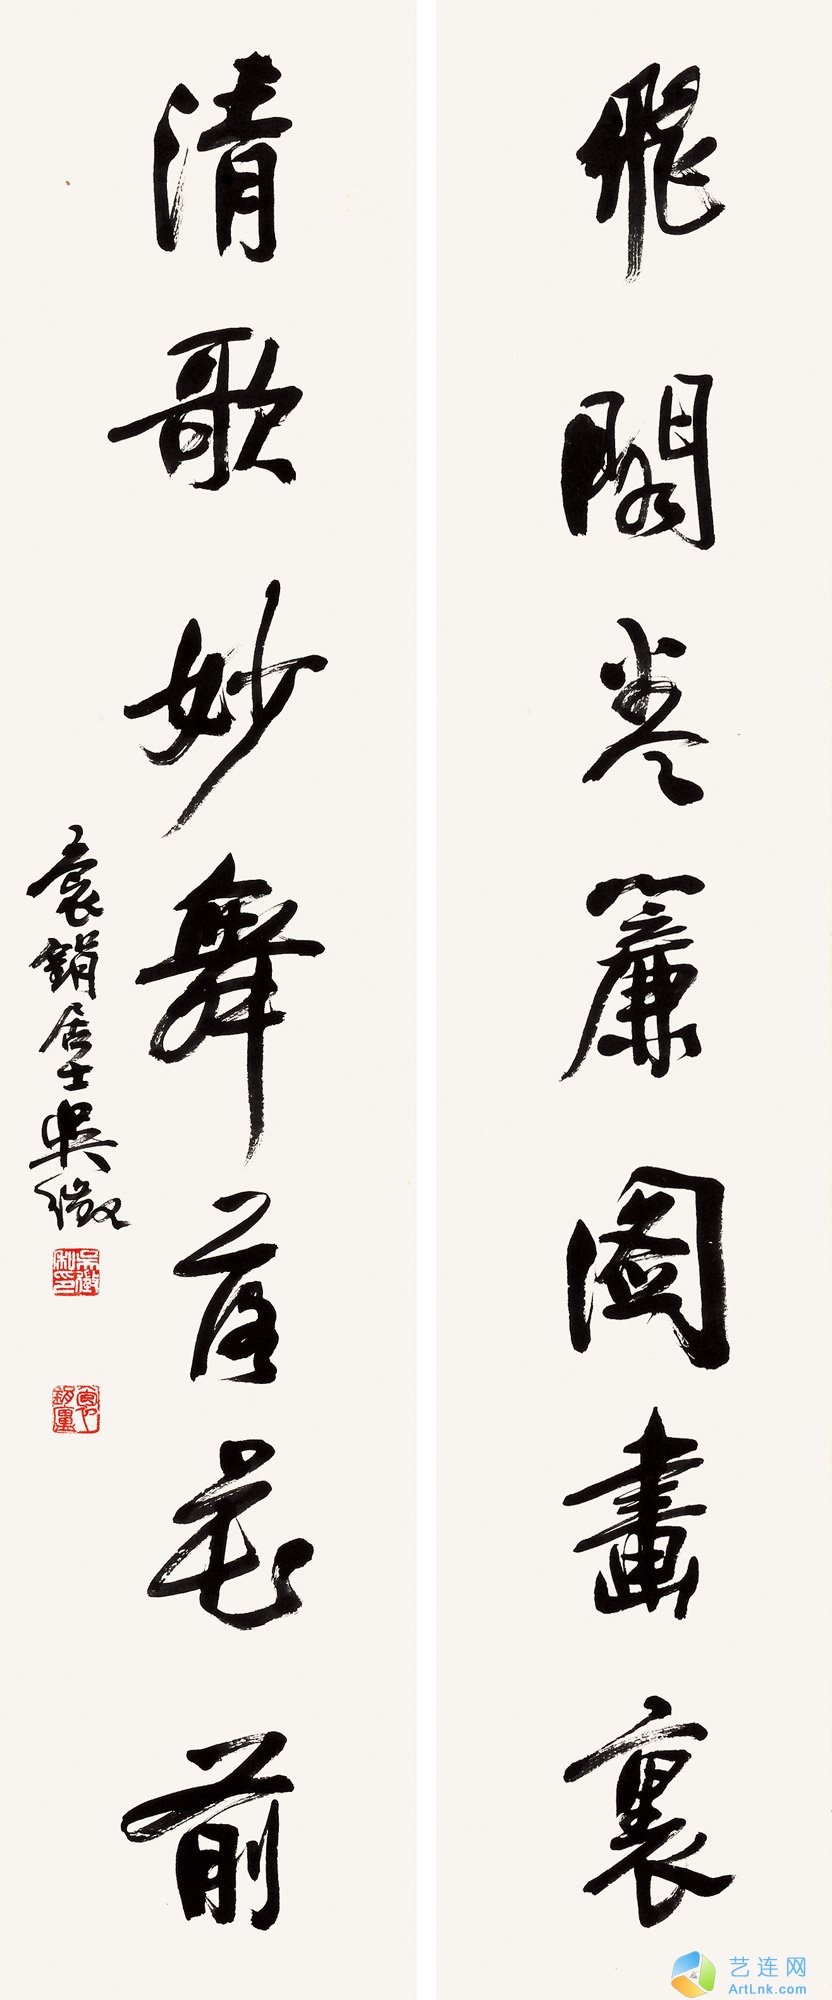 飛閣卷簾圖畫裏
清歌妙舞落花前
袁鋗居士吳徵
吳徵私印
袁鋗璽
艺连网
ArtLnk.com